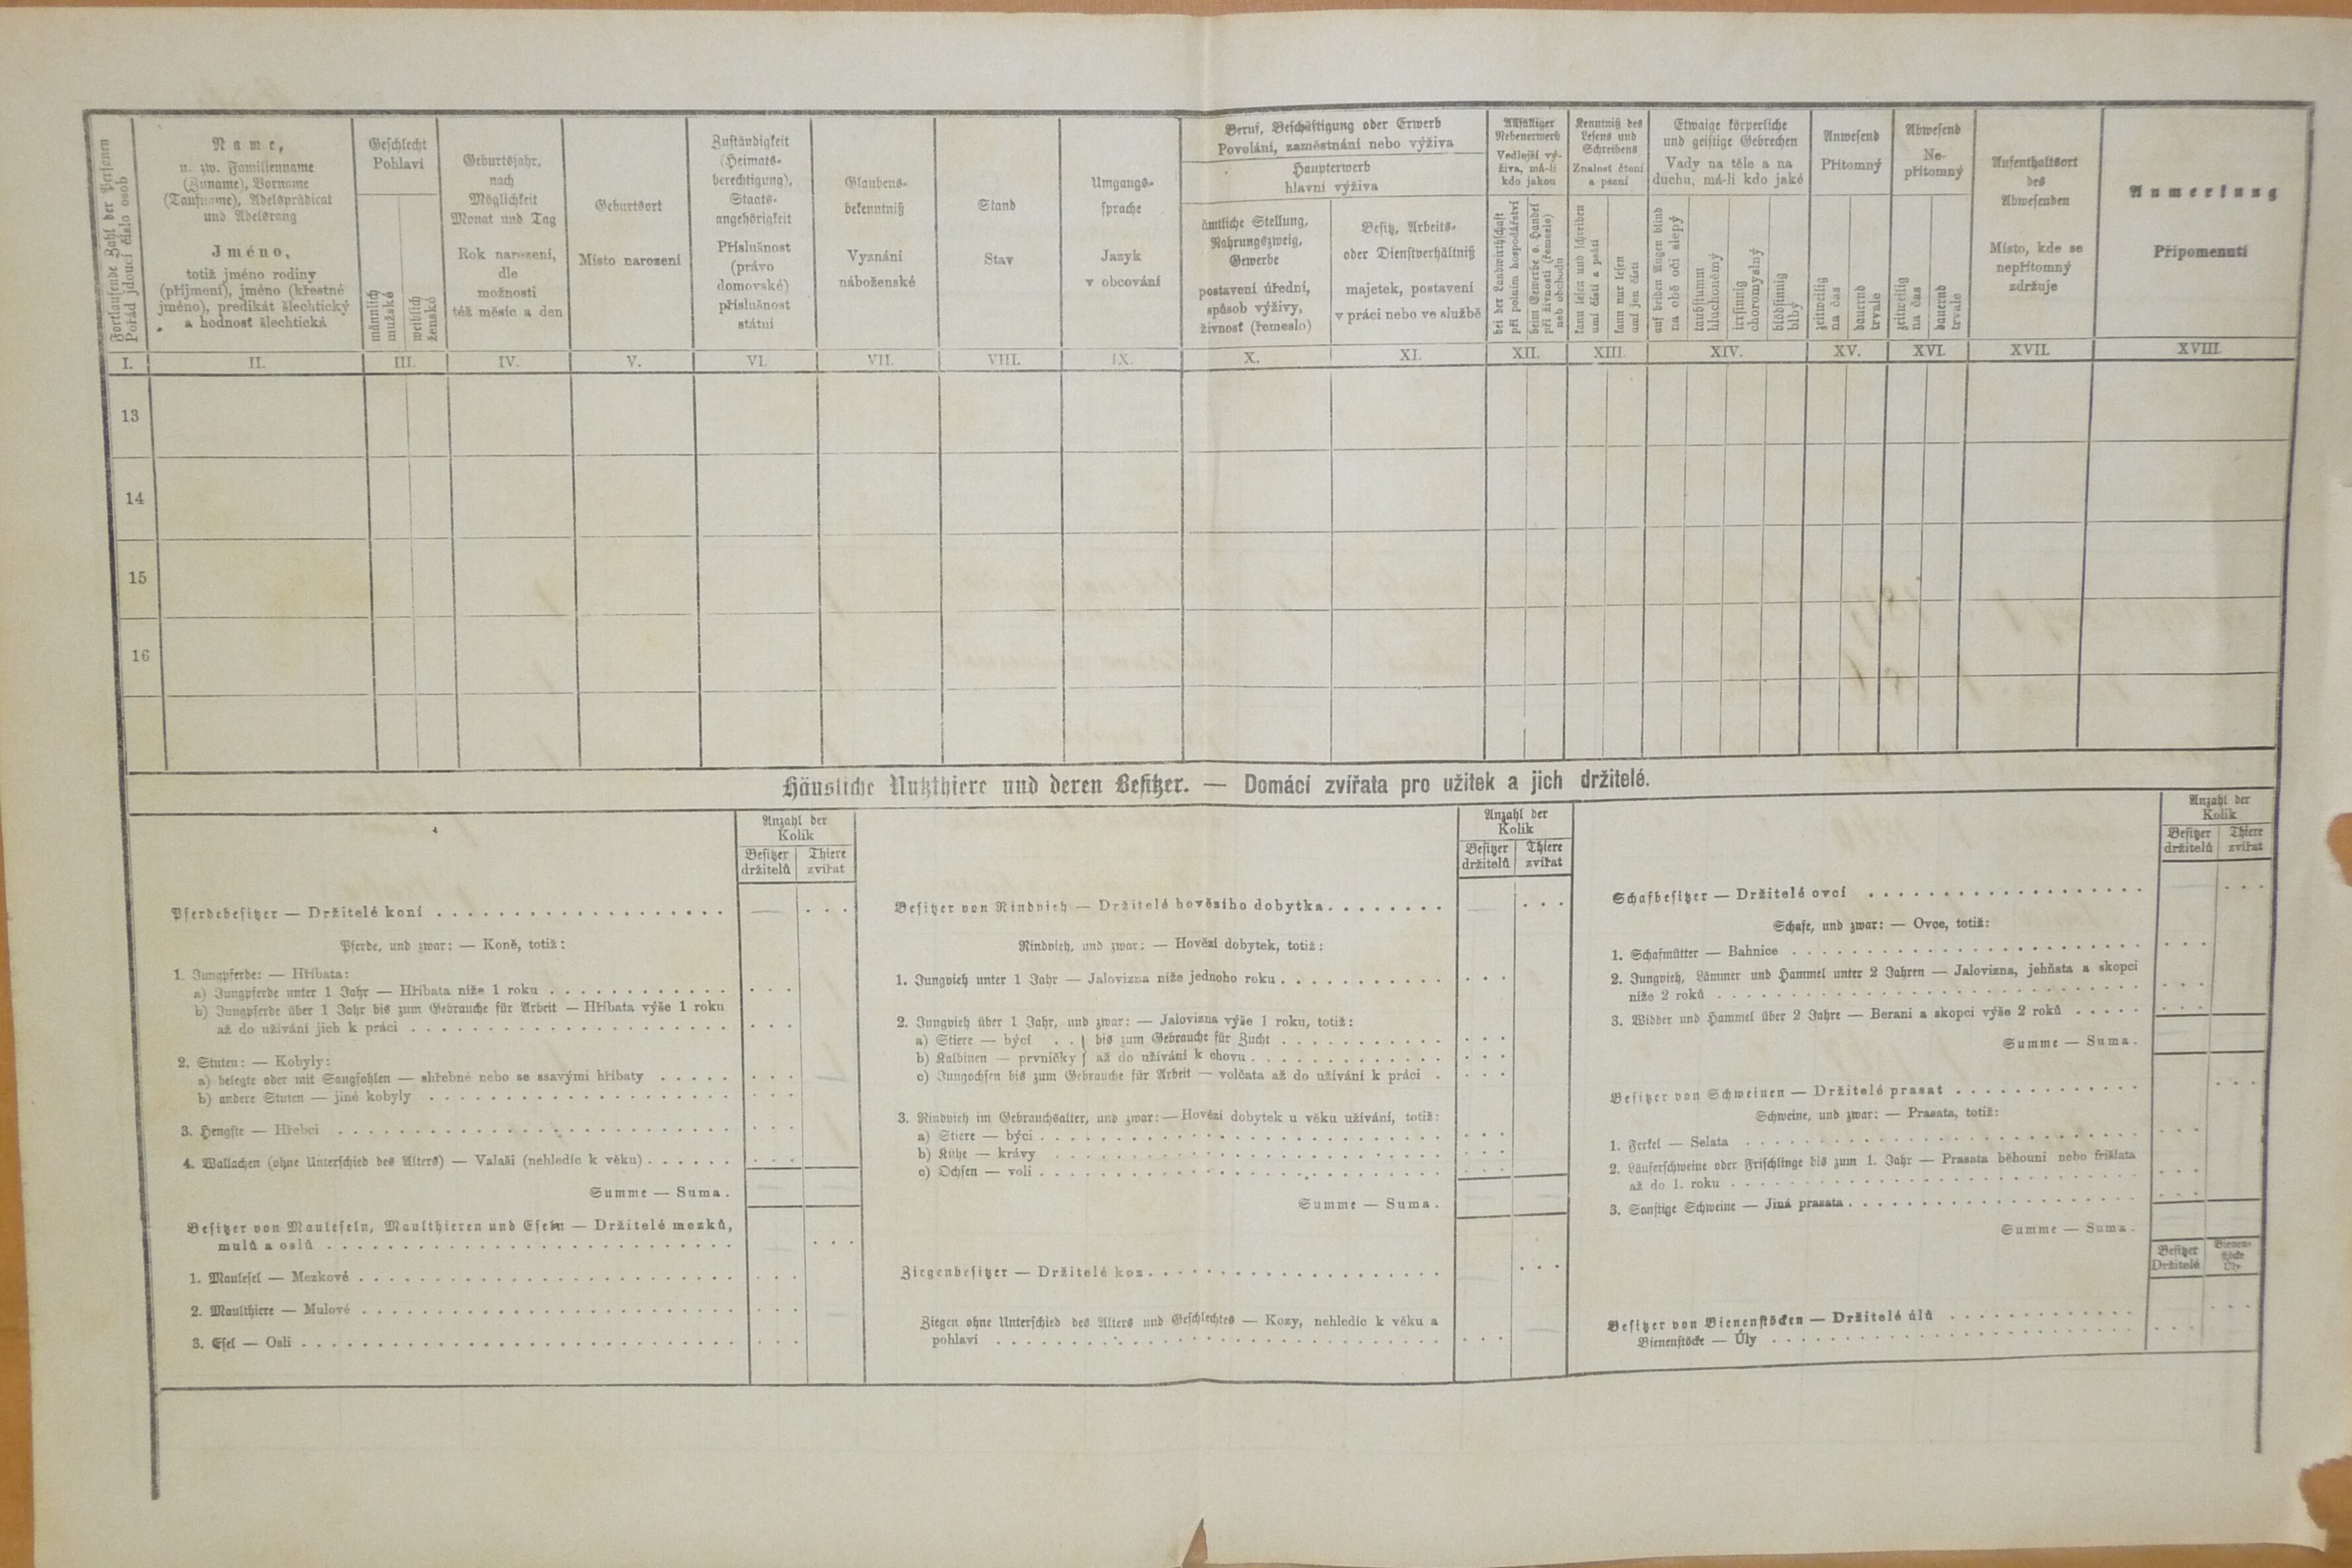 Fortlaufende Zahl der Personen
Pořád jdoucí číslo osob
Name,
u. zw. Familienname
(Zuname), Vorname
(Taufname), Adelsprädicat
und Adelsrang
Jméno,
totiž jméno rodiny
(příjmení), jméno (křestné
jméno), predikát šlechtický
a hodnosť šlechtická
Geschlecht
Pohlaví
männlich
mužské
weiblich
ženské
Geburtsjahr,
nach
Möglichkeit
Monat und Tag
Rok narození,
dle
možnosti
též měsíc a den
Geburtsort
Místo narození
Zuständigkeit
(Heimats-
berechtigung),
Staats-
angehörigkeit
Příslušnost
(právo
domovské)
příslušnost
státní
Glaubens-
bekenntniß
Vyznání
náboženské
Stand
Stav
Umgangs-
sprache
Jazyk
v obcování
Beruf, Beschäftigung oder Erwerb
Povolání, zaměstnání nebo výživa
Haupterwerb
hlavní výživa
ämtliche Stellung,
Nahrungszweig,
Gewerbe
postavení úřední,
spůsob výživy,
živnosť (řemeslo)
Besitz, Arbeits-
oder Dienstverhältniß
majetek, postavení
v práci nebo ve službě
Allfälliger
Nebenerwerb
Vedlejší vý-
živa, má-li
kdo jakou
bei der Landwirthschaft
při polním hospodářství
beim Gewerbe o. Handel
při živnosti (řemesle)
neb obchodu
Kenntniß des
Lesens und
Schreibens
Znalost čtení
a psaní
kann lesen und schreiben
umí čísti a psáti
kann nur lesen
umí jen čísti
Etwaige körperliche
und geistige Gebrechen
Vady na těle a na
duchu, má-li kdo jaké
auf beiden Augen blind
na obě oči slepý
taubstumm
hluchoněmý
irrsinnig
choromyslný
blödsinnig
blbý
Anwesend
Přítomný
zeitweilig
na čas
dauernd
trvale
Abwesend
Ne-
přítomný
zeitweilig
na čas
dauernd
trvale
Aufenthaltsort
des
Abwesenden
Místo, kde se
nepřítomný
zdržuje
Anmerkung
Připomenutí
I. II. III. IV. V. VI. VII. VIII. IX. X. XI. XII. XIII. XIV. XV. XVI. XVII. XVIII.
13
14
15
16
Häusliche Nutzthiere und deren Besitzer. — Domácí zvířata pro užitek a jich držitelé.
Anzahl der
Kolik
Besitzer
držitelů
Thiere
zvířat
Pferdebesitzer — Držitelé koní
Pferde, und zwar: — Koně, totiž:
1. Jungpferde: — Hříbata:
a) Jungpferde unter 1 Jahr — Hříbata níže 1 roku
b) Jungpferde über 1 Jahr bis zum Gebrauche für Arbeit — Hříbata výše 1 roku
až do užívání jich k práci
2. Stuten: — Kobyly:
a) belegte oder mit Saugfohlen — shřebné nebo se ssavými hříbaty
b) andere Stuten — jiné kobyly
3. Hengste — Hřebci
4. Wallachen (ohne Unterschied des Alters) — Valaši (nehledíc k věku)
Summe — Suma.
Besitzer von Mauleseln, Maulthieren und Eseln — Držitelé mezků,
mulů a oslů
1. Maulesel — Mezkové
2. Maulthiere — Mulové
3. Esel — Osli
Anzahl der
Kolik
Besitzer
držitelů
Thiere
zvířat
Besitzer von Rindvieh — Držitelé hovězího dobytka
Rindvieh, und zwar: — Hovězí dobytek, totiž:
1. Jungvieh unter 1 Jahr — Jalovizna níže jednoho roku
2. Jungvieh über 1 Jahr, und zwar: — Jalovizna výše 1 roku, totiž:
a) Stiere — býci . . } bis zum Gebrauche für Zucht
b) Kalbinen — prvničky } až do užívání k chovu
c) Jungochsen bis zum Gebrauche für Arbeit — volčata až do užívání k práci
3. Rindvieh im Gebrauchsalter, und zwar: — Hovězí dobytek u věku užívání, totiž:
a) Stiere — býci
b) Kühe — krávy
c) Ochsen — voli
Summe — Suma.
Ziegenbesitzer — Držitelé koz
Ziegen ohne Unterschied des Alters und Geschlechtes — Kozy, nehledíc k věku a
pohlaví
Anzahl der
Kolik
Besitzer
držitelů
Thiere
zvířat
Schafbesitzer — Držitelé ovcí
Schafe, und zwar: — Ovce, totiž:
1. Schafmütter — Bahnice
2. Jungvieh, Lämmer und Hammel unter 2 Jahren — Jalovizna, jehňata a skopci
níže 2 roků
3. Widder und Hammel über 2 Jahre — Berani a skopci výše 2 roků
Summe — Suma.
Besitzer von Schweinen — Držitelé prasat
Schweine, und zwar: — Prasata, totiž:
1. Ferkel — Selata
2. Läuferschweine oder Frischlinge bis zum 1. Jahr — Prasata běhouni nebo frišlata
až do 1. roku
3. Sonstige Schweine — Jiná prasata
Summe — Suma.
Besitzer
Držitelé
Bienen-
stöcke
Úly
Besitzer von Bienenstöcken — Držitelé úlů
Bienenstöcke — Úly